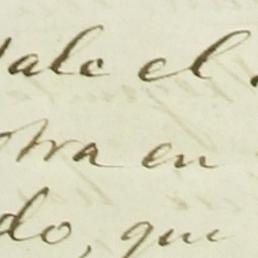 ale el
tra en
do, que